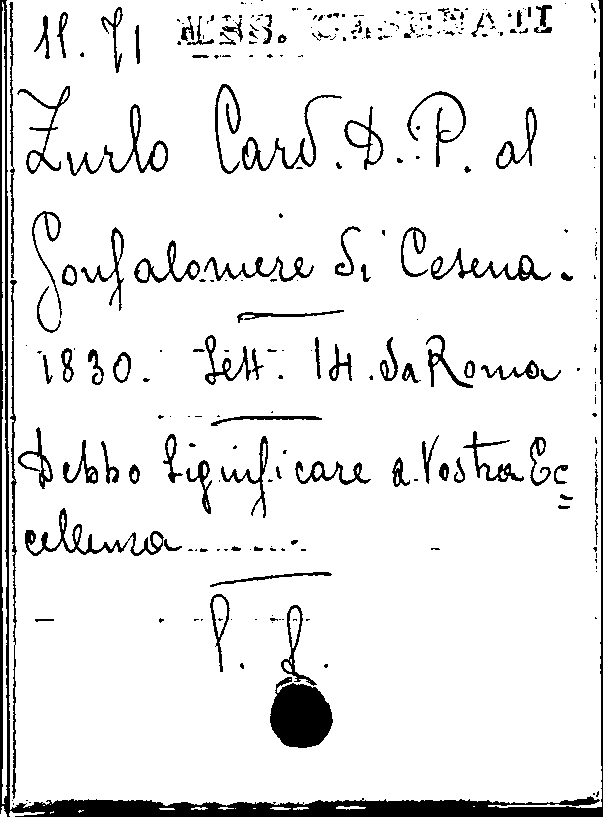 MSS. CESENATI
Zurlo Card. D. P. al
Gonfaloniere di Cesena.
1830. Sett. 14. da Roma
Debbo significare a Vostra Ec=
cellenza .........
P. S.